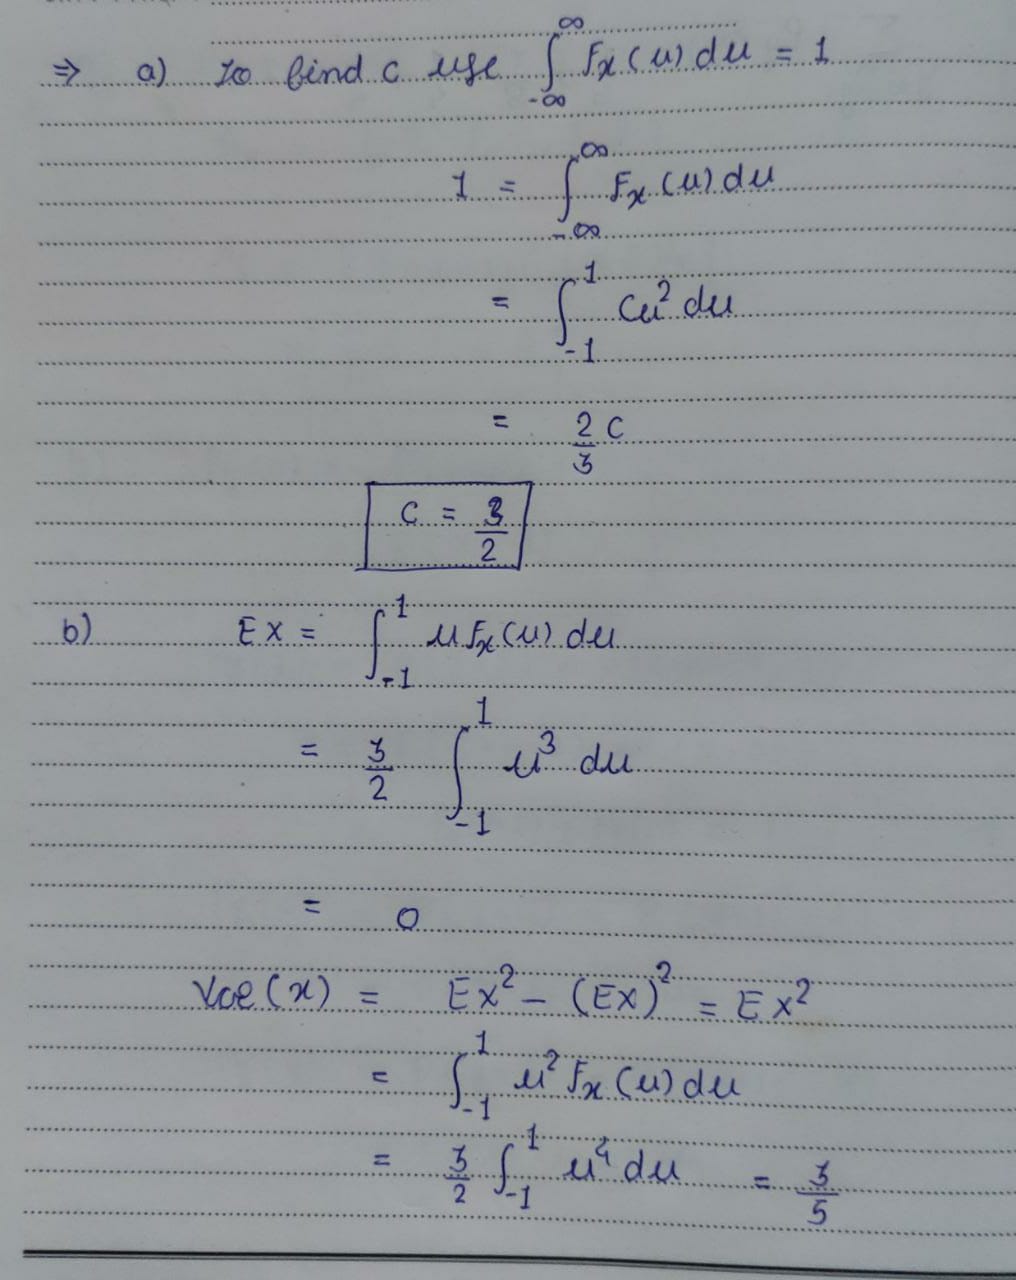 ⇒ a) To find c use ∫_{-∞}^{∞} Fx(u) du = 1
1 = ∫_{-∞}^{∞} Fx(u) du
= ∫_{-1}^{1} Cu² du
= 2/3 C
C = 3/2
b) EX = ∫_{-1}^{1} u Fx(u) du
= 3/2 ∫_{-1}^{1} u³ du
= 0
Var(x) = EX² - (EX)² = EX²
= ∫_{-1}^{1} u² Fx(u) du
= 3/2 ∫_{-1}^{1} u⁴ du = 3/5